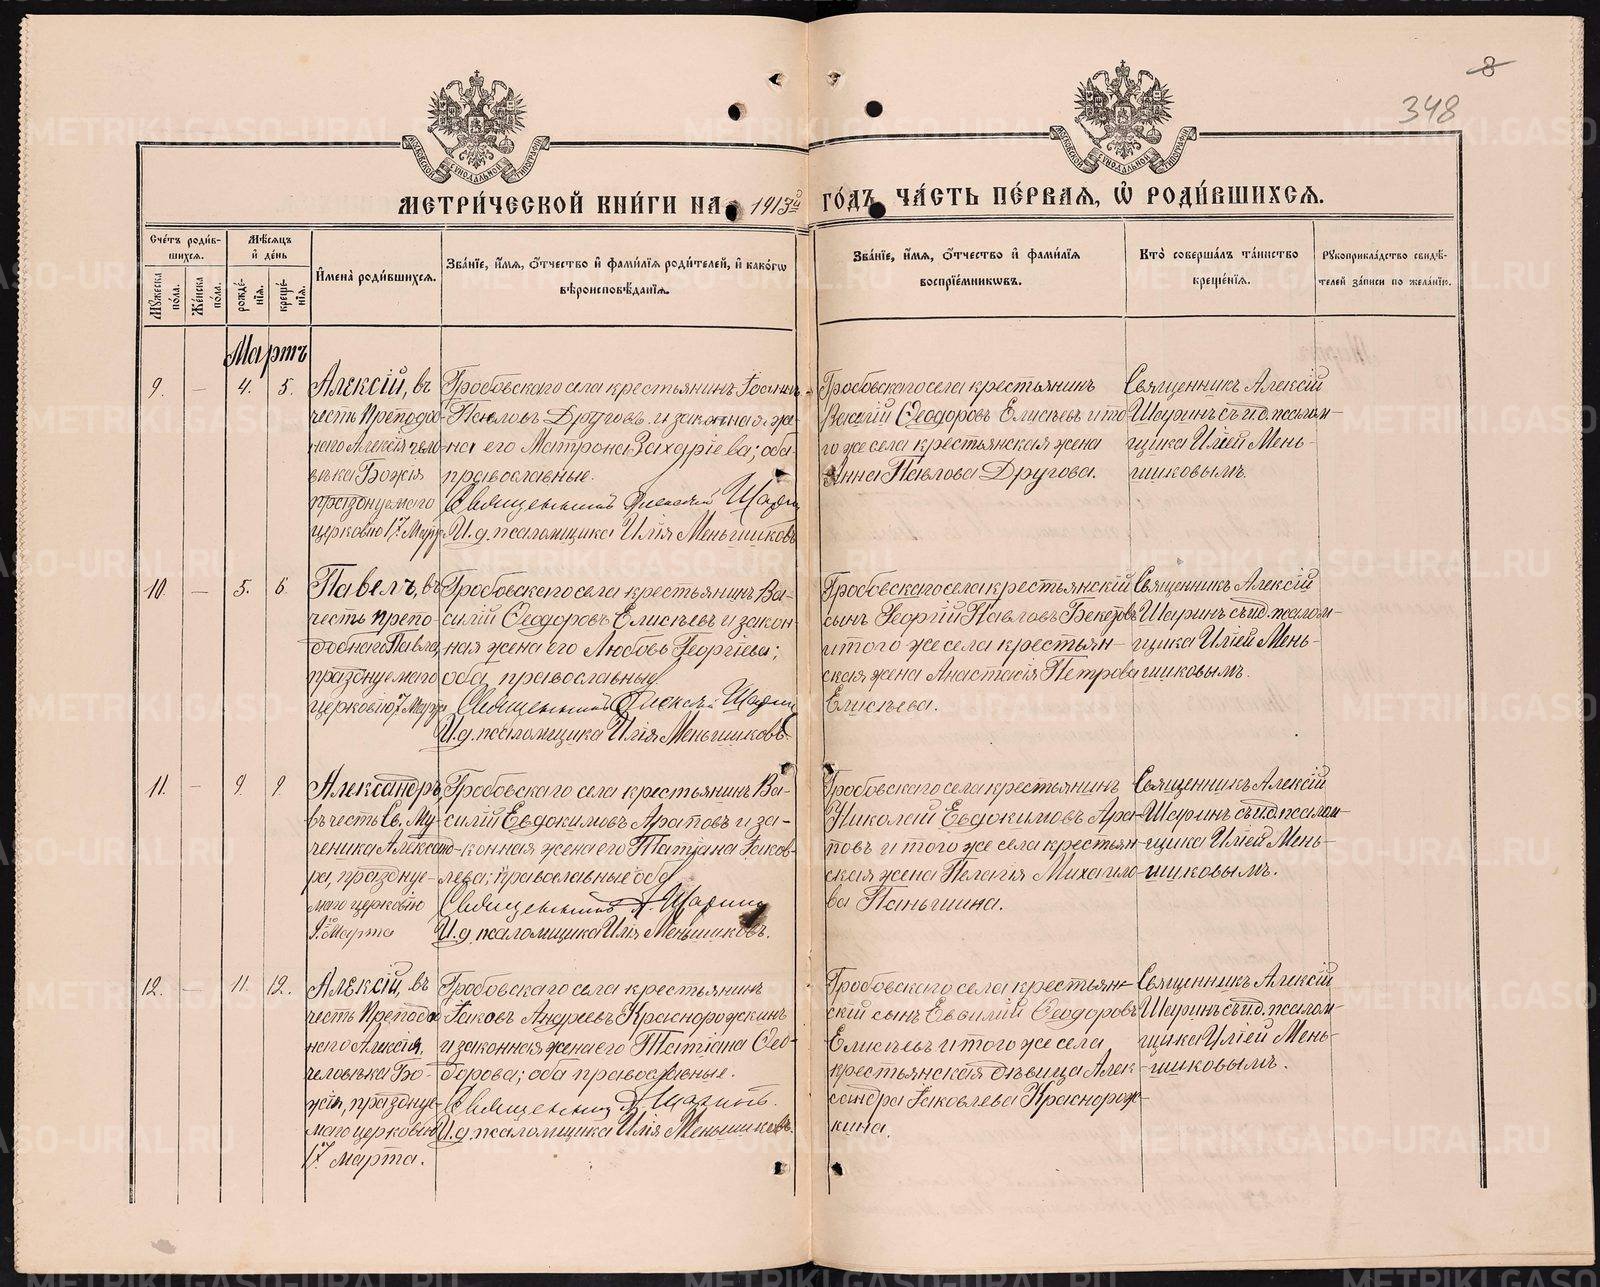 8
348
МОСКОВСКОЙ СѴНОДАЛЬНОЙ ТИПОГРАФІИ
МОСКОВСКОЙ СѴНОДАЛЬНОЙ ТИПОГРАФІИ
МЕТРИ́ЧЕСКОЙ КНИ́ГИ НА 1913й ГО́ДЪ ЧА́СТЬ ПЕ́РВАЯ, Ѽ РОДИ́ВШИХСЯ.
Сче́тъ роди́в-
шихся.
Мꙋ́жеска по́ла.
Же́нска по́ла.
Мѣ́сяцъ
и҆ де́нь
рожде́-
нїя.
креще́-
нїя.
И҆мена̀ роди́вшихся.
Зва́нїе, и҆́мя, ѻ҆́тчество и҆ фами́лїя роди́телей, и҆ како́гѡ
вѣроисповѣ́данїя.
Зва́нїе, и҆́мя, ѻ҆́тчество и҆ фами́лїя
воспрїе́мникѡвъ.
Кто̀ соверша́лъ та́инство
креще́нїя.
Рꙋкоприкла́дство свидѣ́-
телей за́писи по жела́нїю.
Мартъ
9.
—
4.
5.
Алексій, въ
честь Преподоб-
наго Алексія чело-
вѣка Божія
празднуемаго
церковію 17. Мар.
Гробовскаго села крестьянинъ Іоаннъ
Павловъ Друговъ и законная же-
на его Матрона Захаріева; оба
православные.
Священникъ Алексій Шарин
И.д. псаломщика Илія Меньшиковъ
Гробовскаго села крестьянинъ
Василій Ѳеодоровъ Елисѣевъ и то-
го же села крестьянская жена
Анна Павлова Другова.
Священникъ Алексій
Шаринъ съ и.д. псалом-
щика Иліей Мень-
шиковымъ.
10.
—
5.
6.
Павелъ, въ
честь препо-
добнаго Павла,
празднуемаго
церковію 7. Мар.
Гробовскаго села крестьянинъ Ва-
силій Ѳеодоровъ Елисѣевъ и закон-
ная жена его Любовь Георгіева;
оба православные
Священникъ Алексій Шарин
И.д. псаломщика Илія Меньшиковъ.
Гробовскаго села крестьянскій
сынъ Георгій Павловъ Бекетовъ
и того же села крестьян-
ская жена Анастасія Петрова
Елисѣева.
Священникъ Алексій
Шаринъ съ и.д. псалом-
щика Иліей Мень-
шиковымъ.
11.
—
9.
9.
Александръ,
въ честь Св. Му-
ченика Александ-
ра, праздну-
емаго церковію
9. Марта
Гробовскаго села крестьянинъ Ва-
силій Евдокимовъ Араповъ и за-
конная жена его Татіана Іаков-
лева; православные оба
Священникъ А. Шарин
И.д. псаломщика Илія Меньшиковъ.
Гробовскаго села крестьянинъ
Николай Евдокимовъ Ара-
повъ и того же села крестьян-
ская жена Пелагія Михаило-
ва Паньшина.
Священникъ Алексій
Шаринъ съ и.д. псалом-
щика Иліей Мень-
шиковымъ.
12.
—
11.
12.
Алексій, въ
честь Преподоб-
наго Алексія,
человѣка Бо-
жія, праздну-
емаго церковію
17. Марта.
Гробовскаго села крестьянинъ
Іаковъ Андреевъ Краснорожкинъ
и законная жена его Татіана Ѳео-
дорова; оба православные.
Священникъ А. Шаринъ.
И.д. псаломщика Илія Меньшиковъ.
Гробовскаго села крестьян-
скій сынъ Евѳилій Ѳеодоровъ
Елисѣевъ и того же села
крестьянская дѣвица Алек-
сандра Іаковлева Краснорож-
кина.
Священникъ Алексій
Шаринъ съ и.д. псалом-
щика Иліей Мень-
шиковымъ.
METRIKI.GASO-URAL.RU